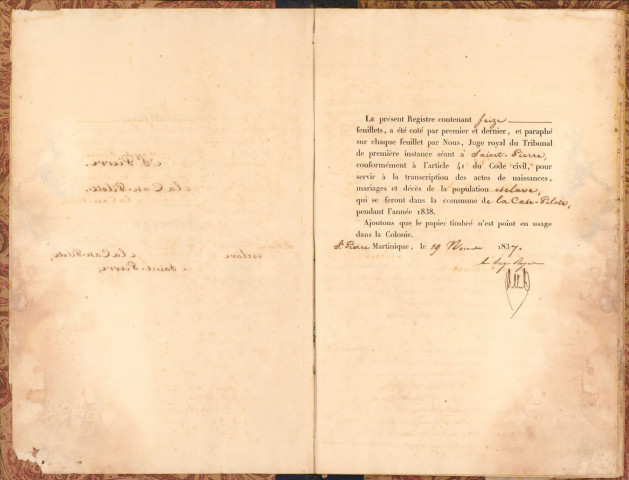 LE présent Registre contenant seize
feuillets, a été coté par premier et dernier, et paraphé
sur chaque feuillet par Nous, Juge royal du Tribunal
de première instance séant à Saint-Pierre,
conformément à l'article 41 du Code civil, pour
servir à la transcription des actes de naissances,
mariages et décès de la population esclave,
qui se feront dans la commune de la Case-Pilote,
pendant l'année 1838.
Ajoutons que le papier timbré n'est point en usage
dans la Colonie.
St Pierre Martinique, le 19 1837.
Le Juge Royal